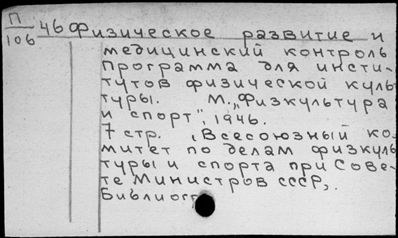 П
106
46 Физическое развитие и
медицинский контроль
Программа для инсти-
тутов физической куль
туры. М., „Физкультура
и спорт", 1946.
7 стр. (Всесоюзный ко-
митет по делам физкуль
туры и спорта при Сове-
те Министров СССР).
Библиогр